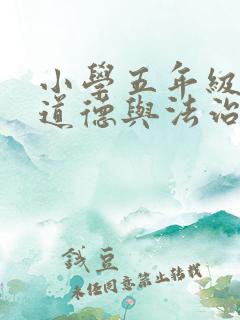 小學五年級
道德與法治
錢豆
未經同意禁止轉載